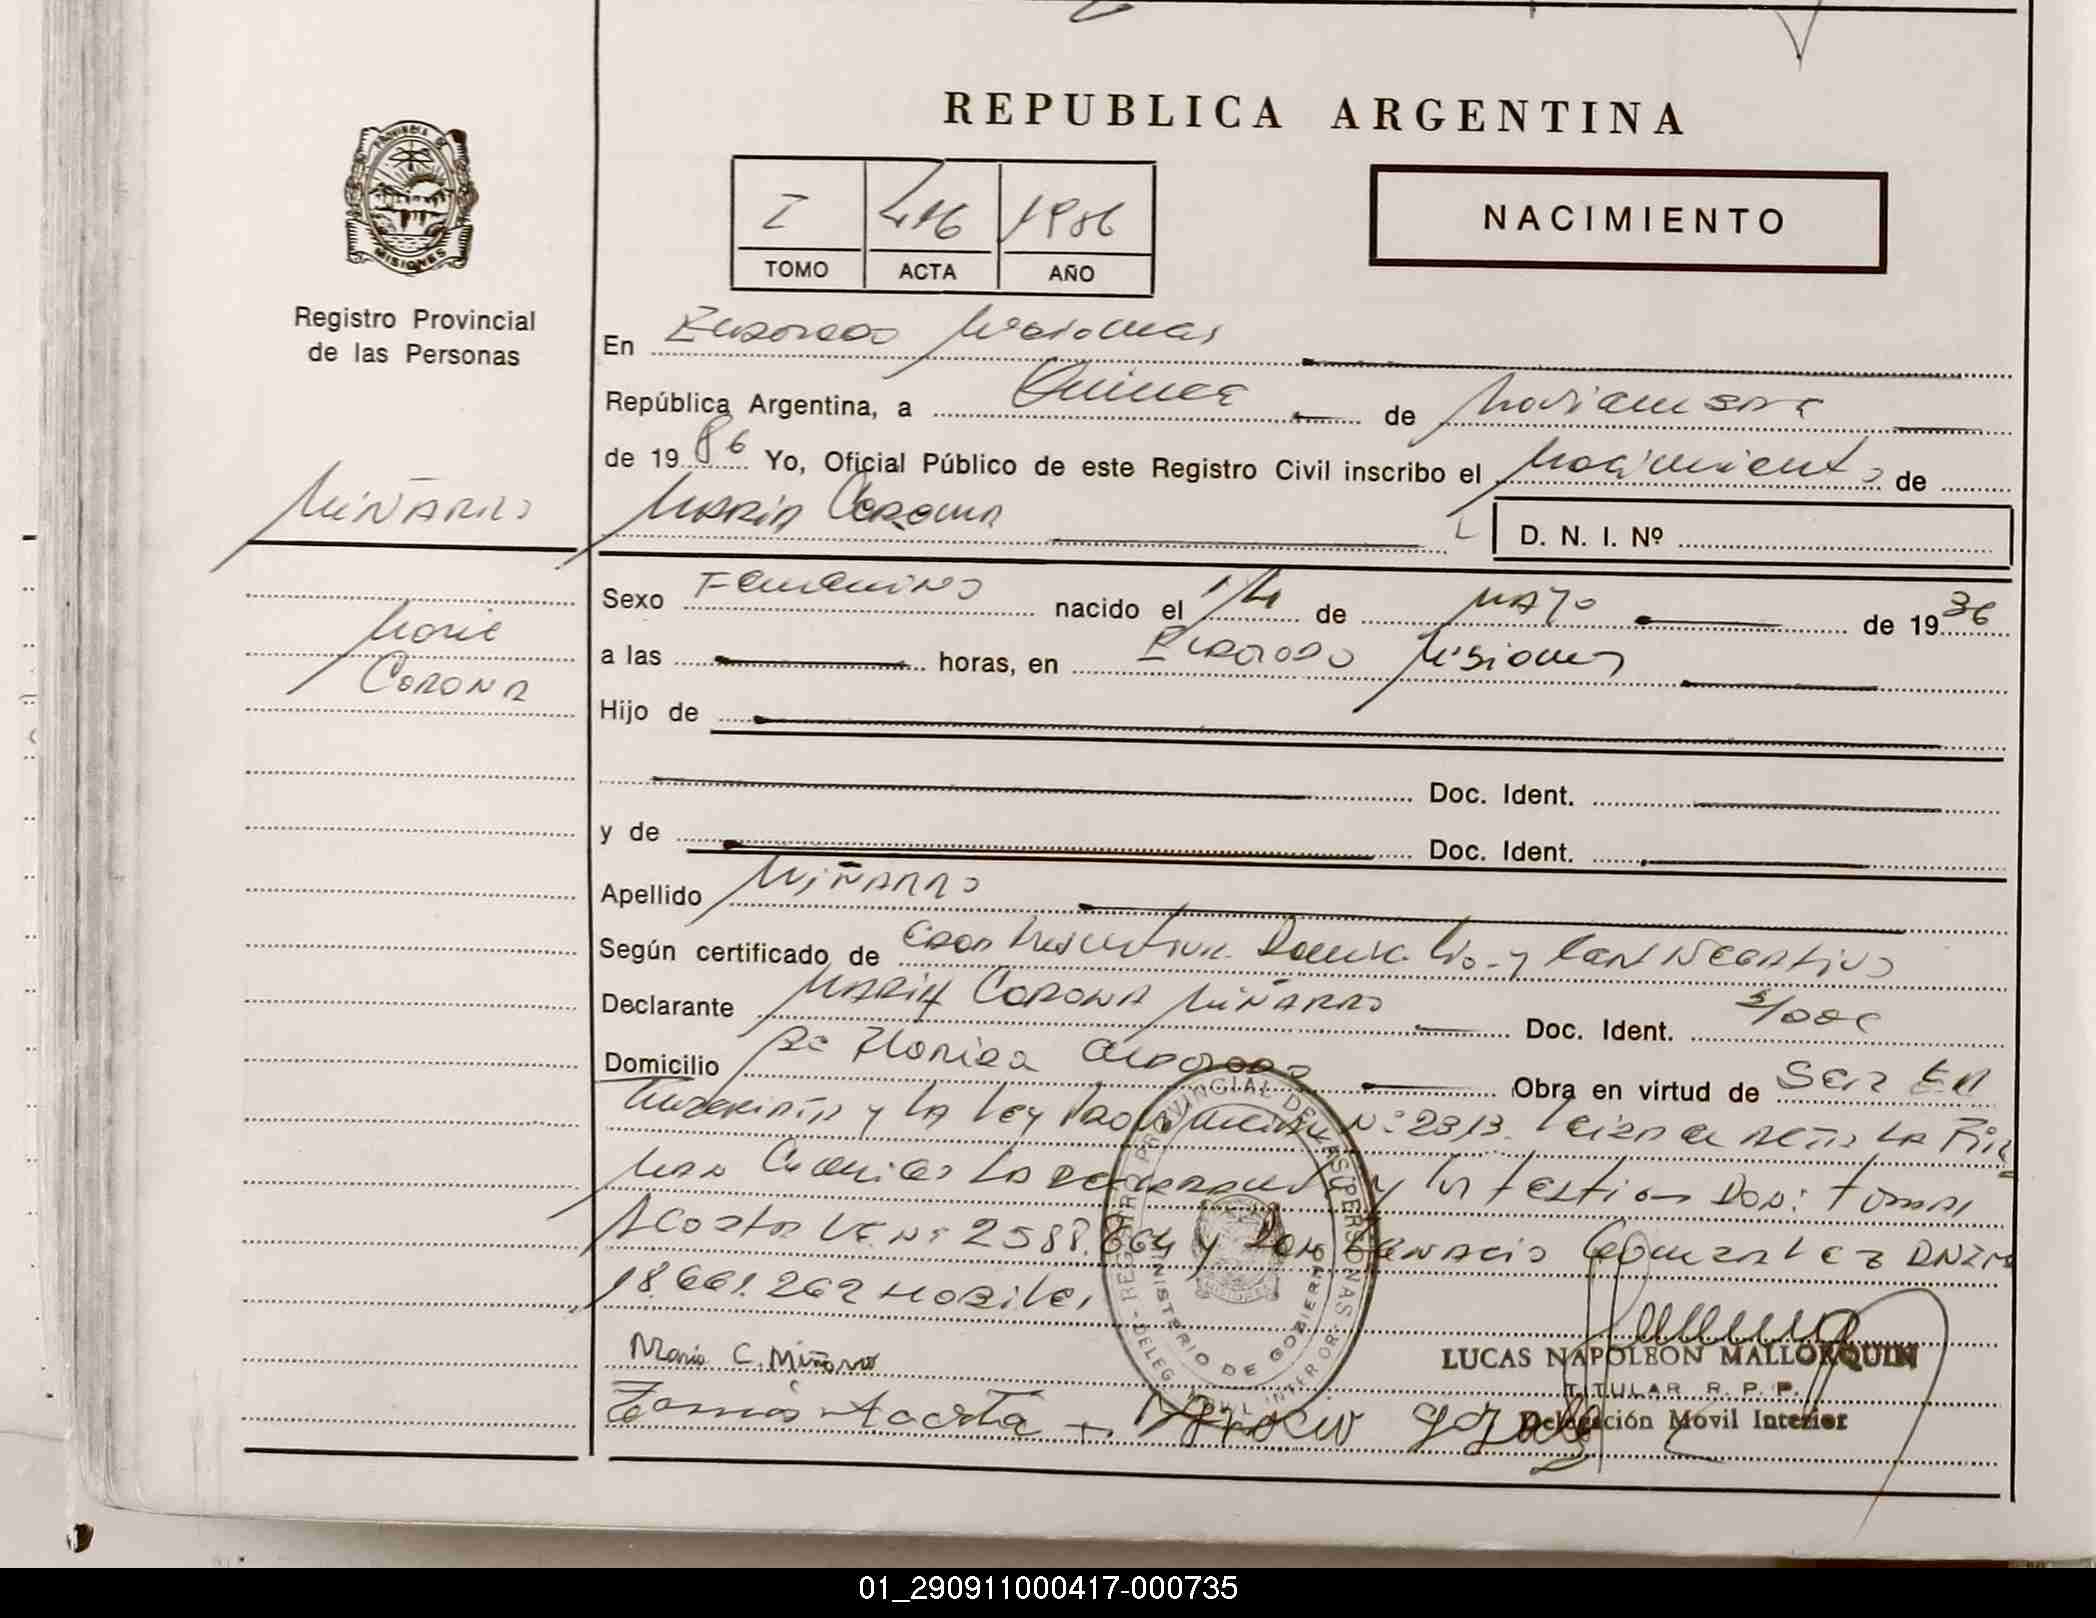 REPUBLICA ARGENTINA
NACIMIENTO
I 416 1986
TOMO ACTA AÑO
PROVINCIA DE
MISIONES
Registro Provincial
de las Personas
En Eldorado Misiones
República Argentina, a Quince de Noviembre
de 1986 Yo, Oficial Público de este Registro Civil inscribo el Nacimiento de
MIÑARRO
MARIA CORONA
D. N. I. Nº
Sexo Femenino nacido el 14 de MAYO de 1936
Maria
CORONA
a las horas, en Eldorado Misiones
Hijo de
Doc. Ident.
y de Doc. Ident.
Apellido MIÑARRO
Según certificado de Negativo
Declarante MARIA CORONA MIÑARRO Doc. Ident. s/doc
Domicilio Eldorado Obra en virtud de
y LA Ley Nº 2313. Leida el Acta LA Fir
man la y los testigos DON: Tomas
Acosta Nº 2588.864 y Don Ignacio Gomzalez DNIM
18.661.262 Habiles
Maria C. Miñarro
LUCAS NAPOLEON MALLORQUIN
TITULAR R. P. P.
Delegación Movil Interior
Tomás Acosta
REGISTRO PROVINCIAL DE LAS PERSONAS
MINISTERIO DE GOBIERNO
DELEG. MOVIL INTERIOR
01_290911000417-000735